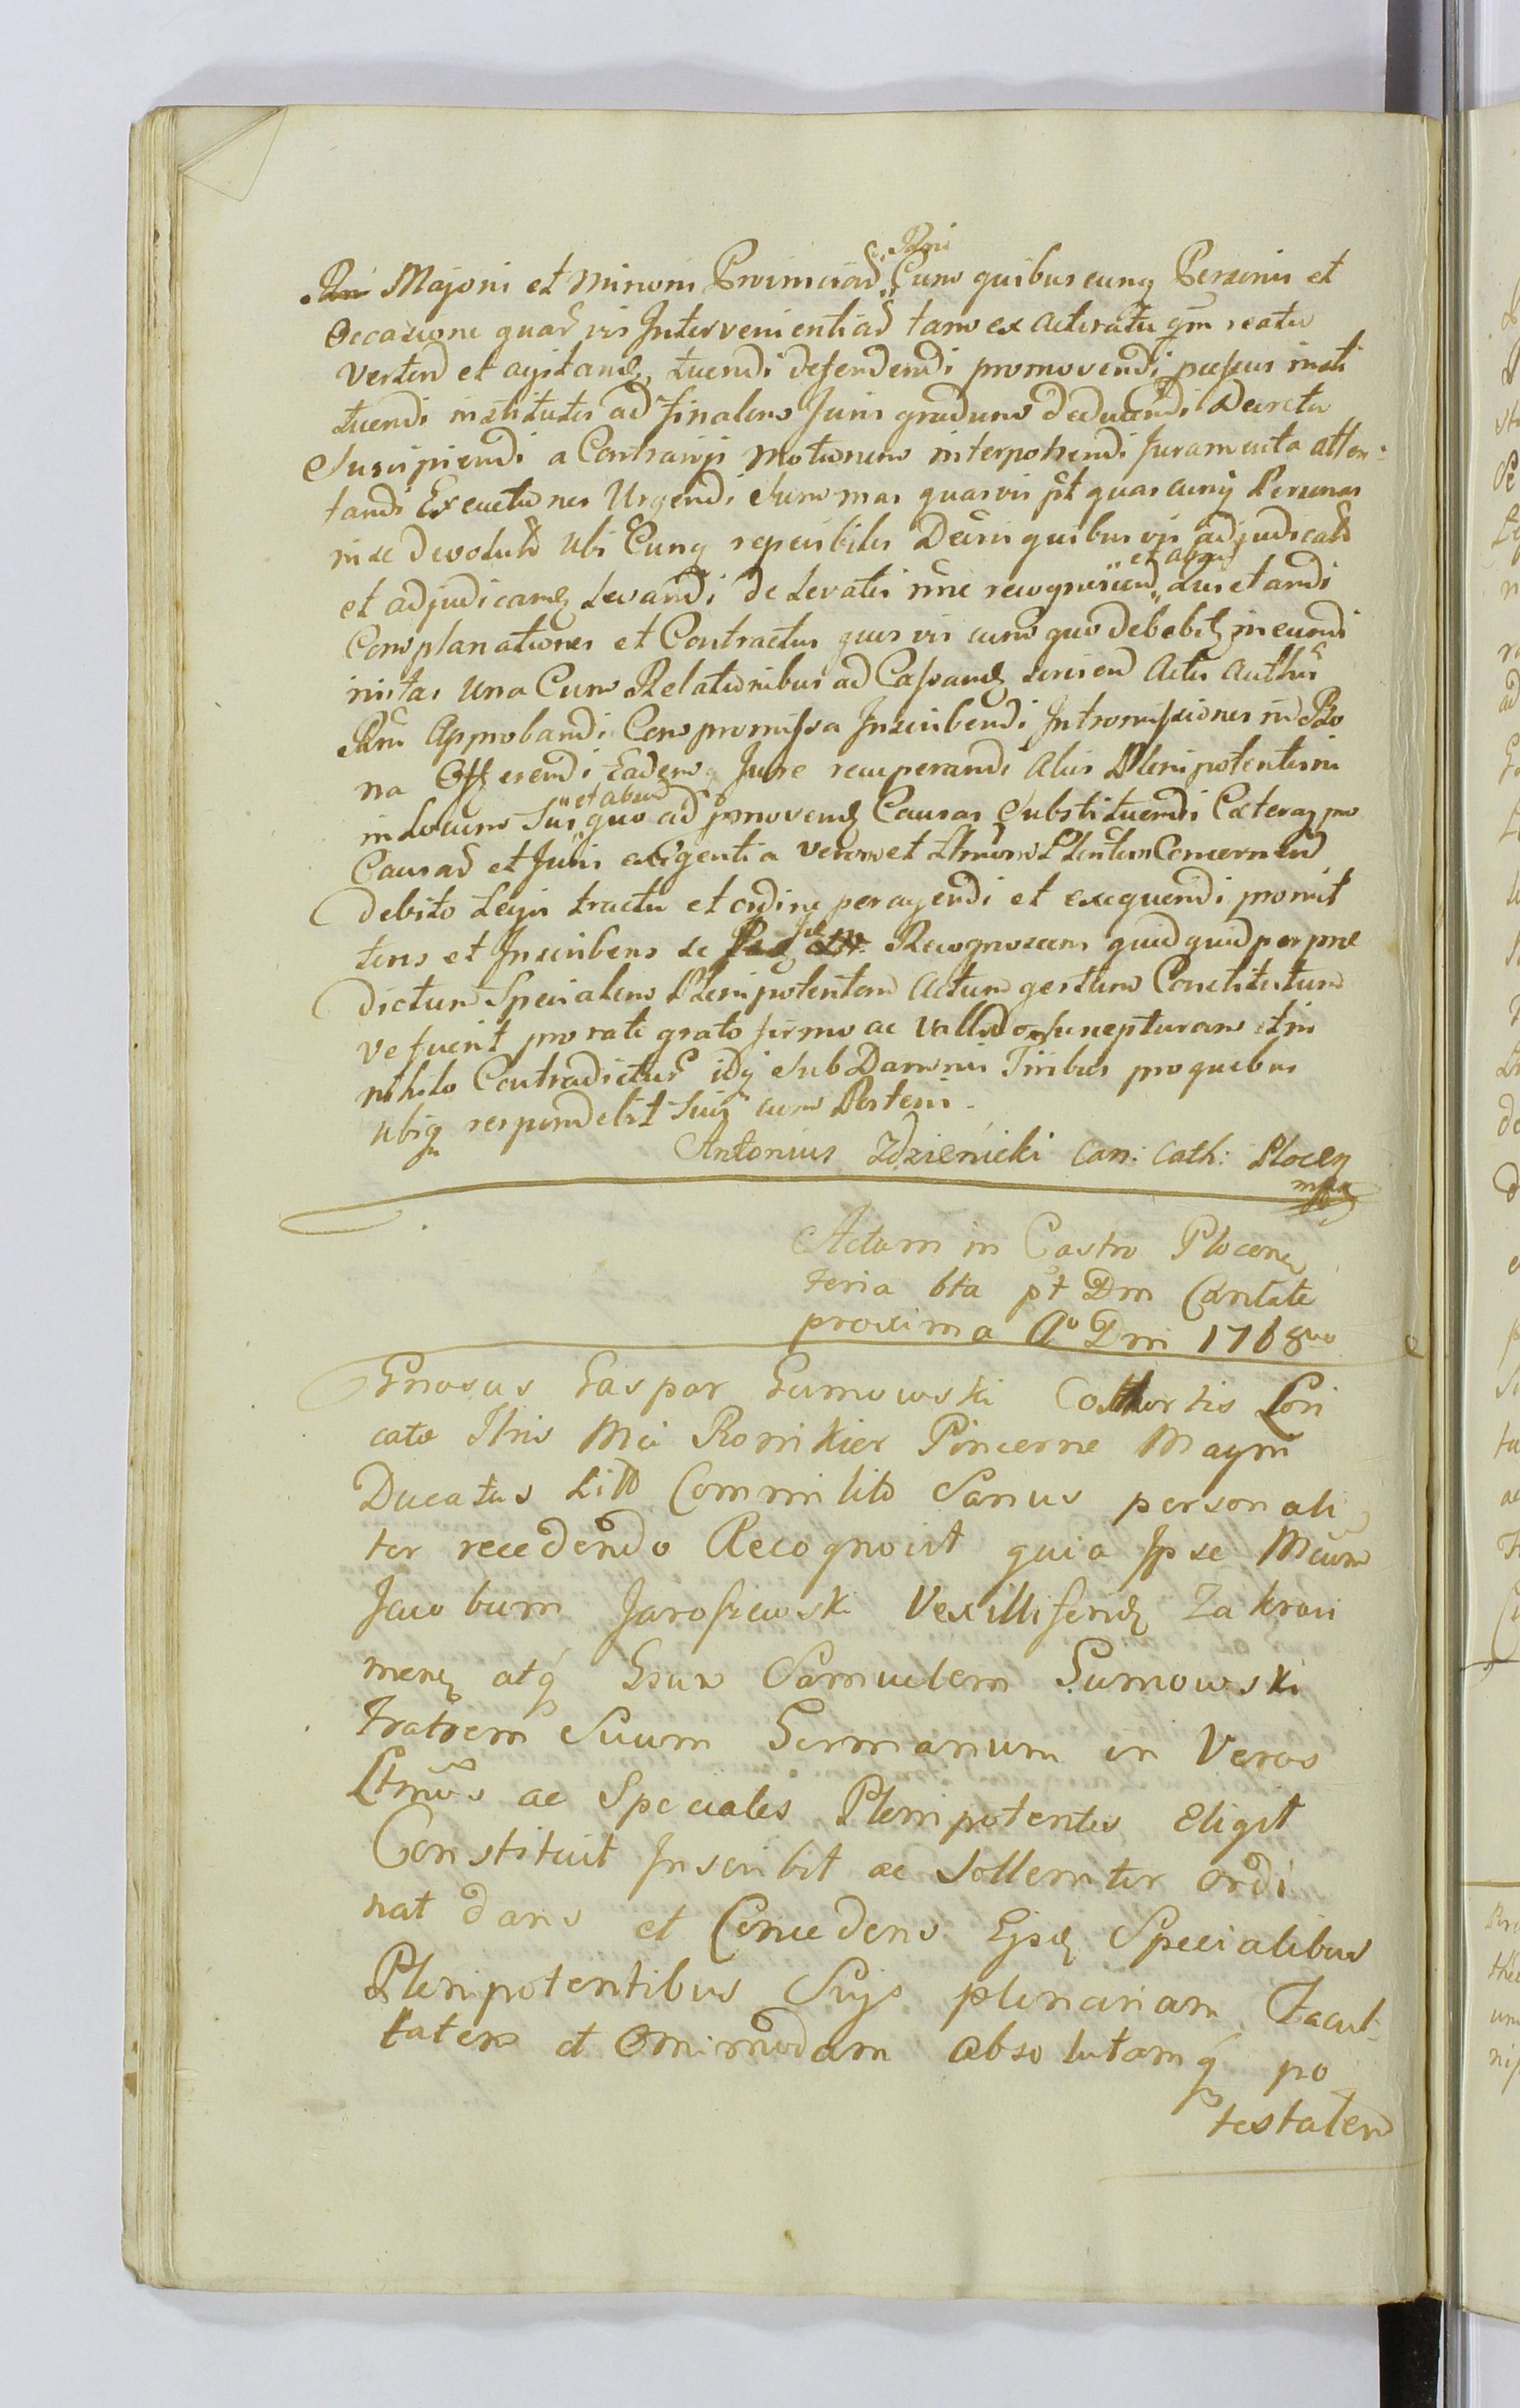 Majoris et Minoris Provinciar̃ Rñi Cum quibuscunq Personis et
Occasione quar̃ vis Intervenientiar̃ tam ex actoratu qm̃ reatu
Verten̄ et agitan̄, tuendi defendendi promovendi insti
tuendi institutis ad finalem Juris gradum deducendi Decreta
Suscipiendi a Contrarijs Motionem interponendi Juramenta atten:
tandi Executiones Urgendi Summas quasvis pt quascunq Personas
in se devolut̃ ubi Cunq reperibiles Decris quibusvis adjudicatas
et adjudican̄ Levandi de Levatis recognoscen̄ et absue Quietandi
Complanationes et Contractus quosvis cum quo debebit̃ ineundi
initas una Cum Relationibus ad Cassan̄ Actis Authen̄
Approbandi Compromissa Inscribendi Intromissiones in Bo
na Offerendi Eademq Jure recuperandi alios Plenipotentem
in Locum Sui et absue quo ad pmoven̄ Causas Substituendi Cæteraq pro
Causar̃ et Juris exigentia verum et Ltmum Plentem Concernen̄
debito Legis tractu et ordine peragendi et exequendi promit
tens et Inscribens se Recognoscens quidquid per præ
dictum Specialem Plenipotentem Actum gestum Constitutum
ve fuerit pro rato grato firmo ac Vallido suscepturum et in
nihilo Contradictur̃ idq Sub Damnis Trribus pro quibus
ubiq respondebit Suis cum Posteris.
Antonius Zdzienicki Can: Cath: Plocen
mpp
Actum in Castro Plocen
feria 6ta pt Dm Cantate
proxima Ao Dni 1768vo
Gnosus Gaspar Gumowski Cohortis Lori
catæ Ilris Mci Ronikier Pincernæ Magni
Ducatus Litt Commilito Sanus personali
ter recedendo Recognovit quia Ipse Mcum
Jacobum Jaroszewski Vexilliferum Zakroci
men atq Gsum Samuelem Gumowski
Fratrem Suum Germanum in Veros
Ltmos ac Speciales Plenipotentes Eligit
Constituit Inscribit ac Sollemter ordi
nat dans et Concedens Ejsd Specialibus
Plenipotentibus Suijs plenariam Facul:
tatem et Omnimodam absolutamq po
testatem